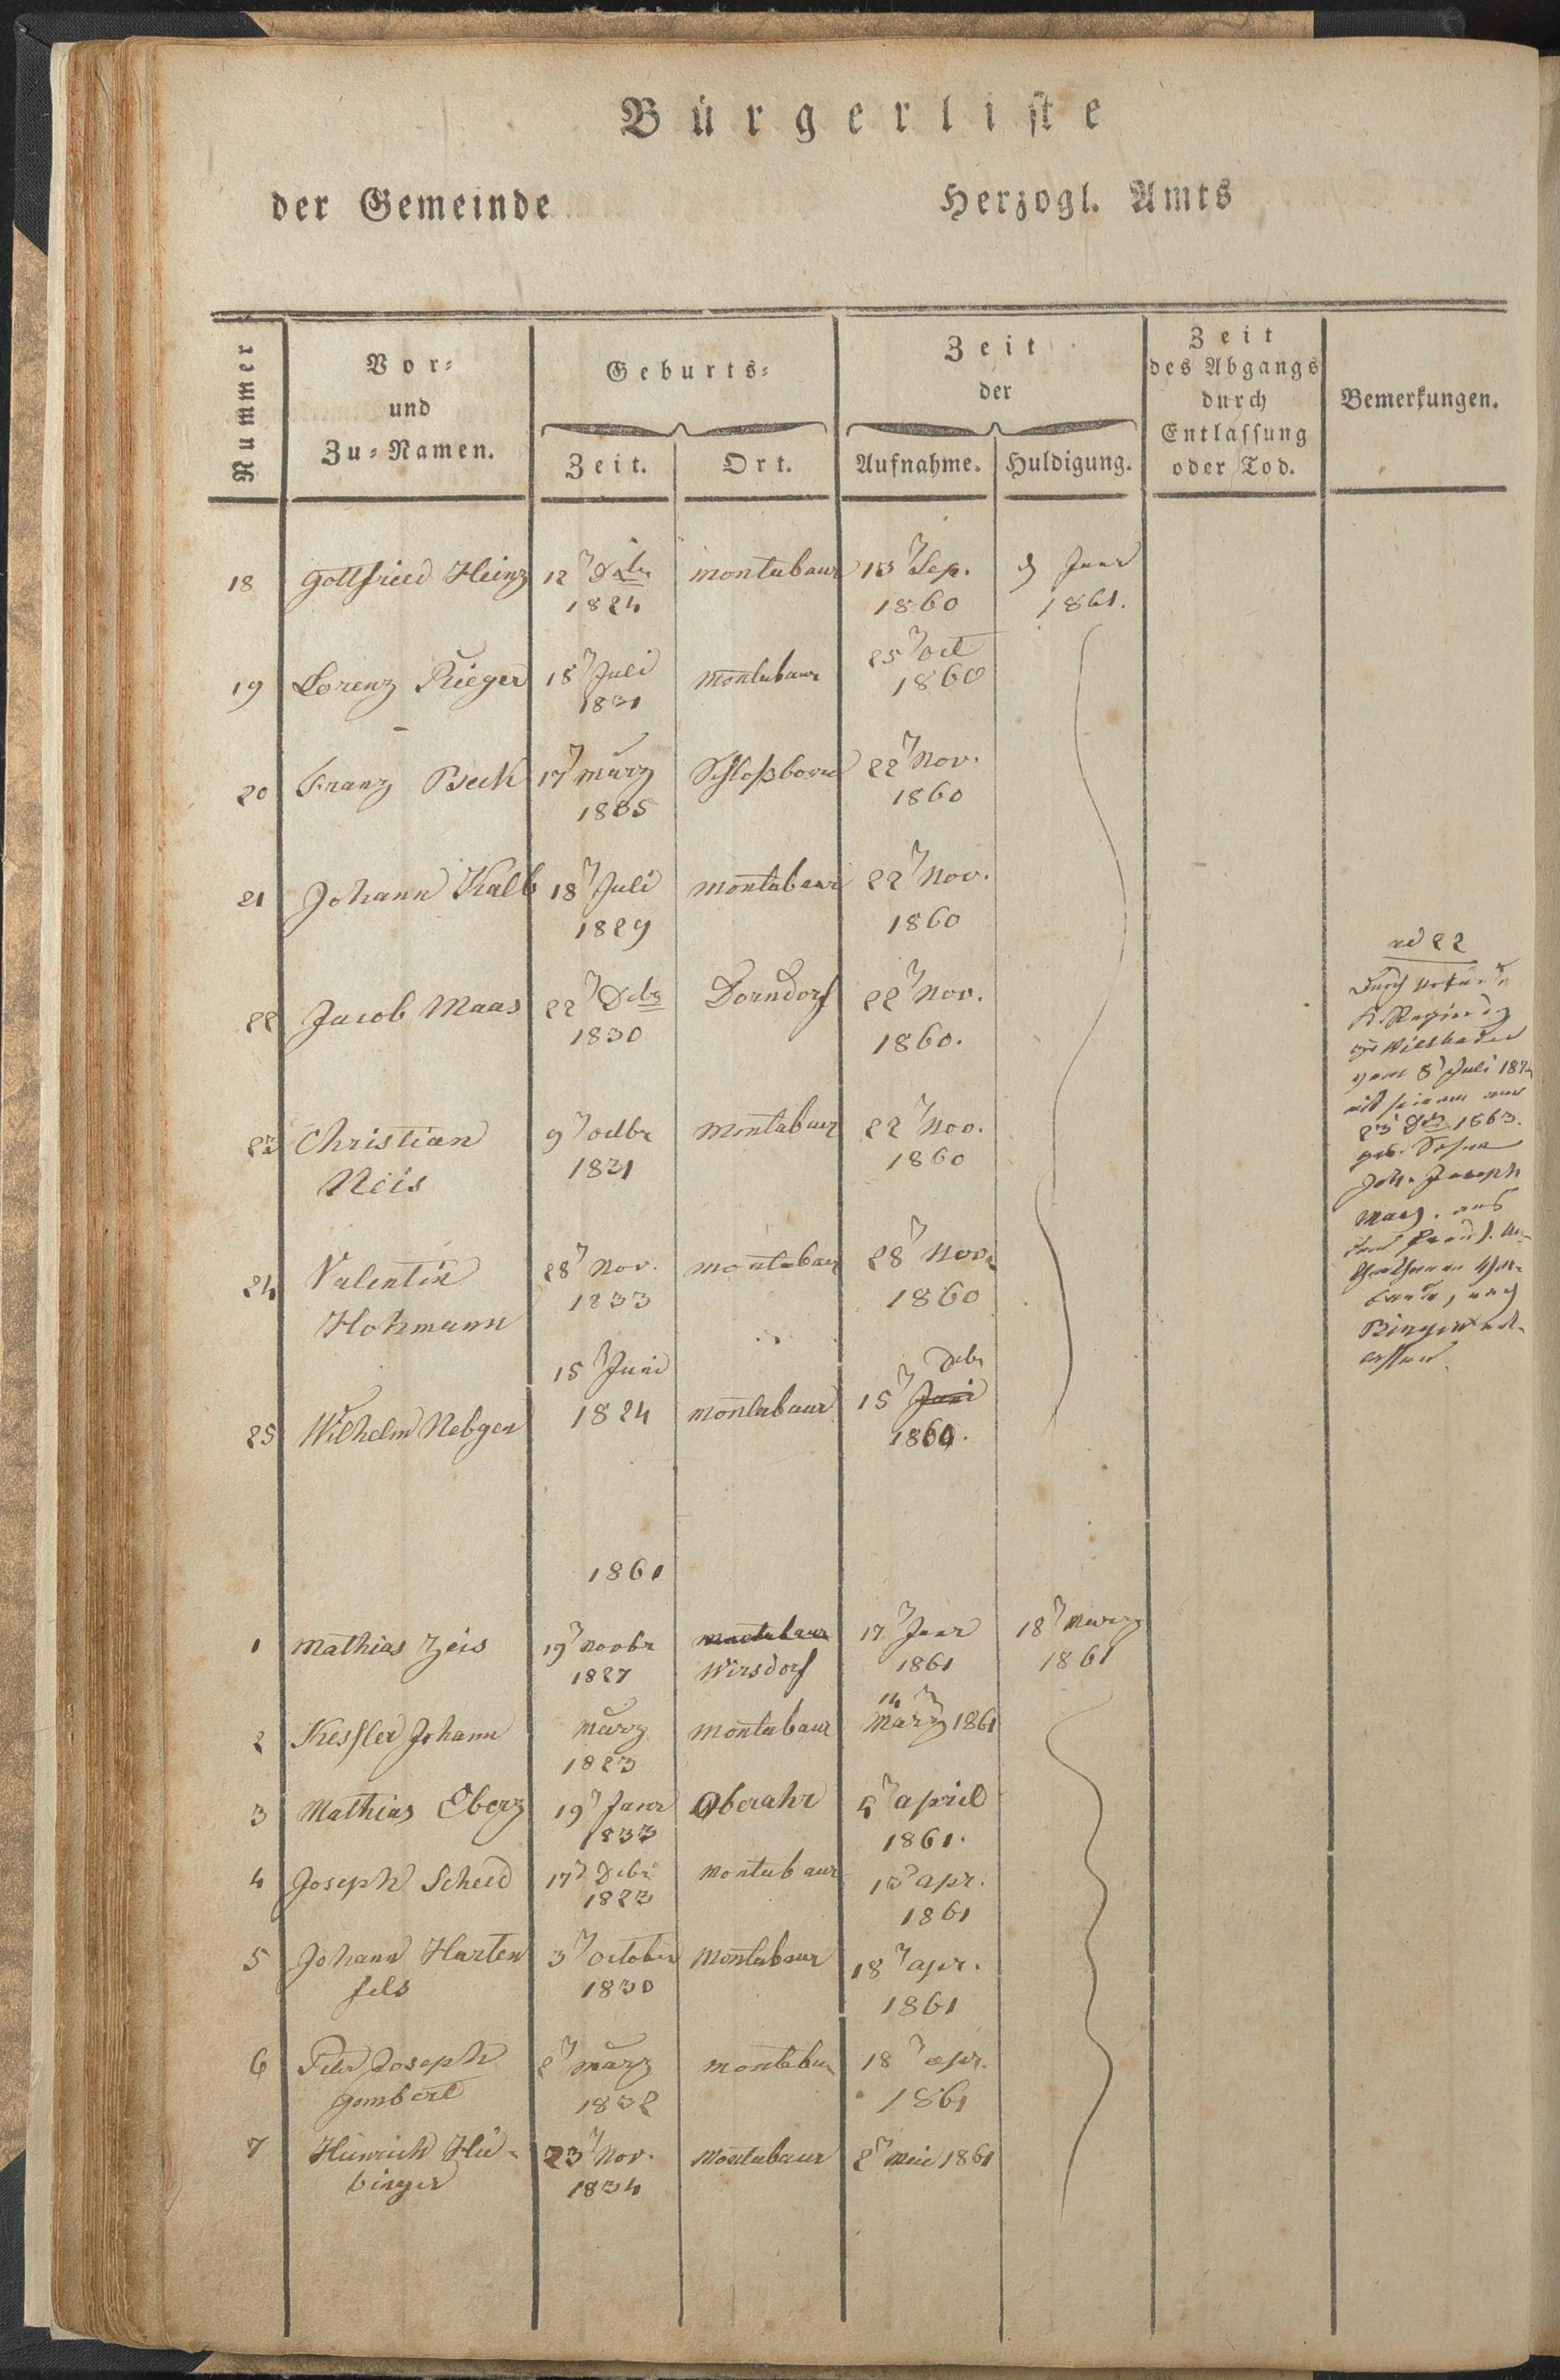 Bürgerliste
der Gemeinde Herzogl. Amts
Nummer
Vor-
und
Zu-Namen.
Geburts-
Zeit. Ort.
Zeit
der
Aufnahme. Huldigung.
Zeit
des Abgangs
durch
Entlassung
oder Tod.
Bemerkungen.
18 Gottfried Heinz 12 montabaur 13 Sep. Janr
1824 1860 1861.
19 Lorenz Rieger 18 Juli montabaur 25 Oct
1831 1860
20 Franz Beck 17 märz Schloßborn 22 Nov.
1835 1860
21 Johann Kalb 18 Juli montabaur 22 Nov.
1829 1860
22 Jacob Maas 22 Dcbr Dorndorf 22 Nov.
1830 1860.
23 Christian 9 octbr montabaur 22 Nov.
Neis 1831 1860
24 Valentin 28 Nov. montabaur 28 Nov.
Hohmann 1833 1860
15 Juni Debr
25 Wilhelm Nebgen 1824 montabaur 15 Juni
1860.
ad 22
Durch
Wiesbaden
vom 8 Juli 187
mit seinem am
23 1863.
geb. Sohne
Joh. Joseph
Maas. aus
dem
1861
1 Mathias Zeis 19 Novbr montabaur 17 Janr 18 März
1827 Wirsdorf 1861 1861
2 Kessler Johann märz montabaur 14 März 1861
1823
3 Mathias Eberz 19 Janr Oberahr 4 april
1833 1861.
4 Joseph Scheid 17 Debr Montabaur 13 apr.
1823 1861
5 Johann Harten 3 October Montabaur 18 apr.
fels 1830 1861
6 Peter Joseph 2 März montabaur 18 apr.
Gombert 1832 1861
7 Heinrich Hü- 23 Nov. Montabaur 2 Mai 1861
binger 1834